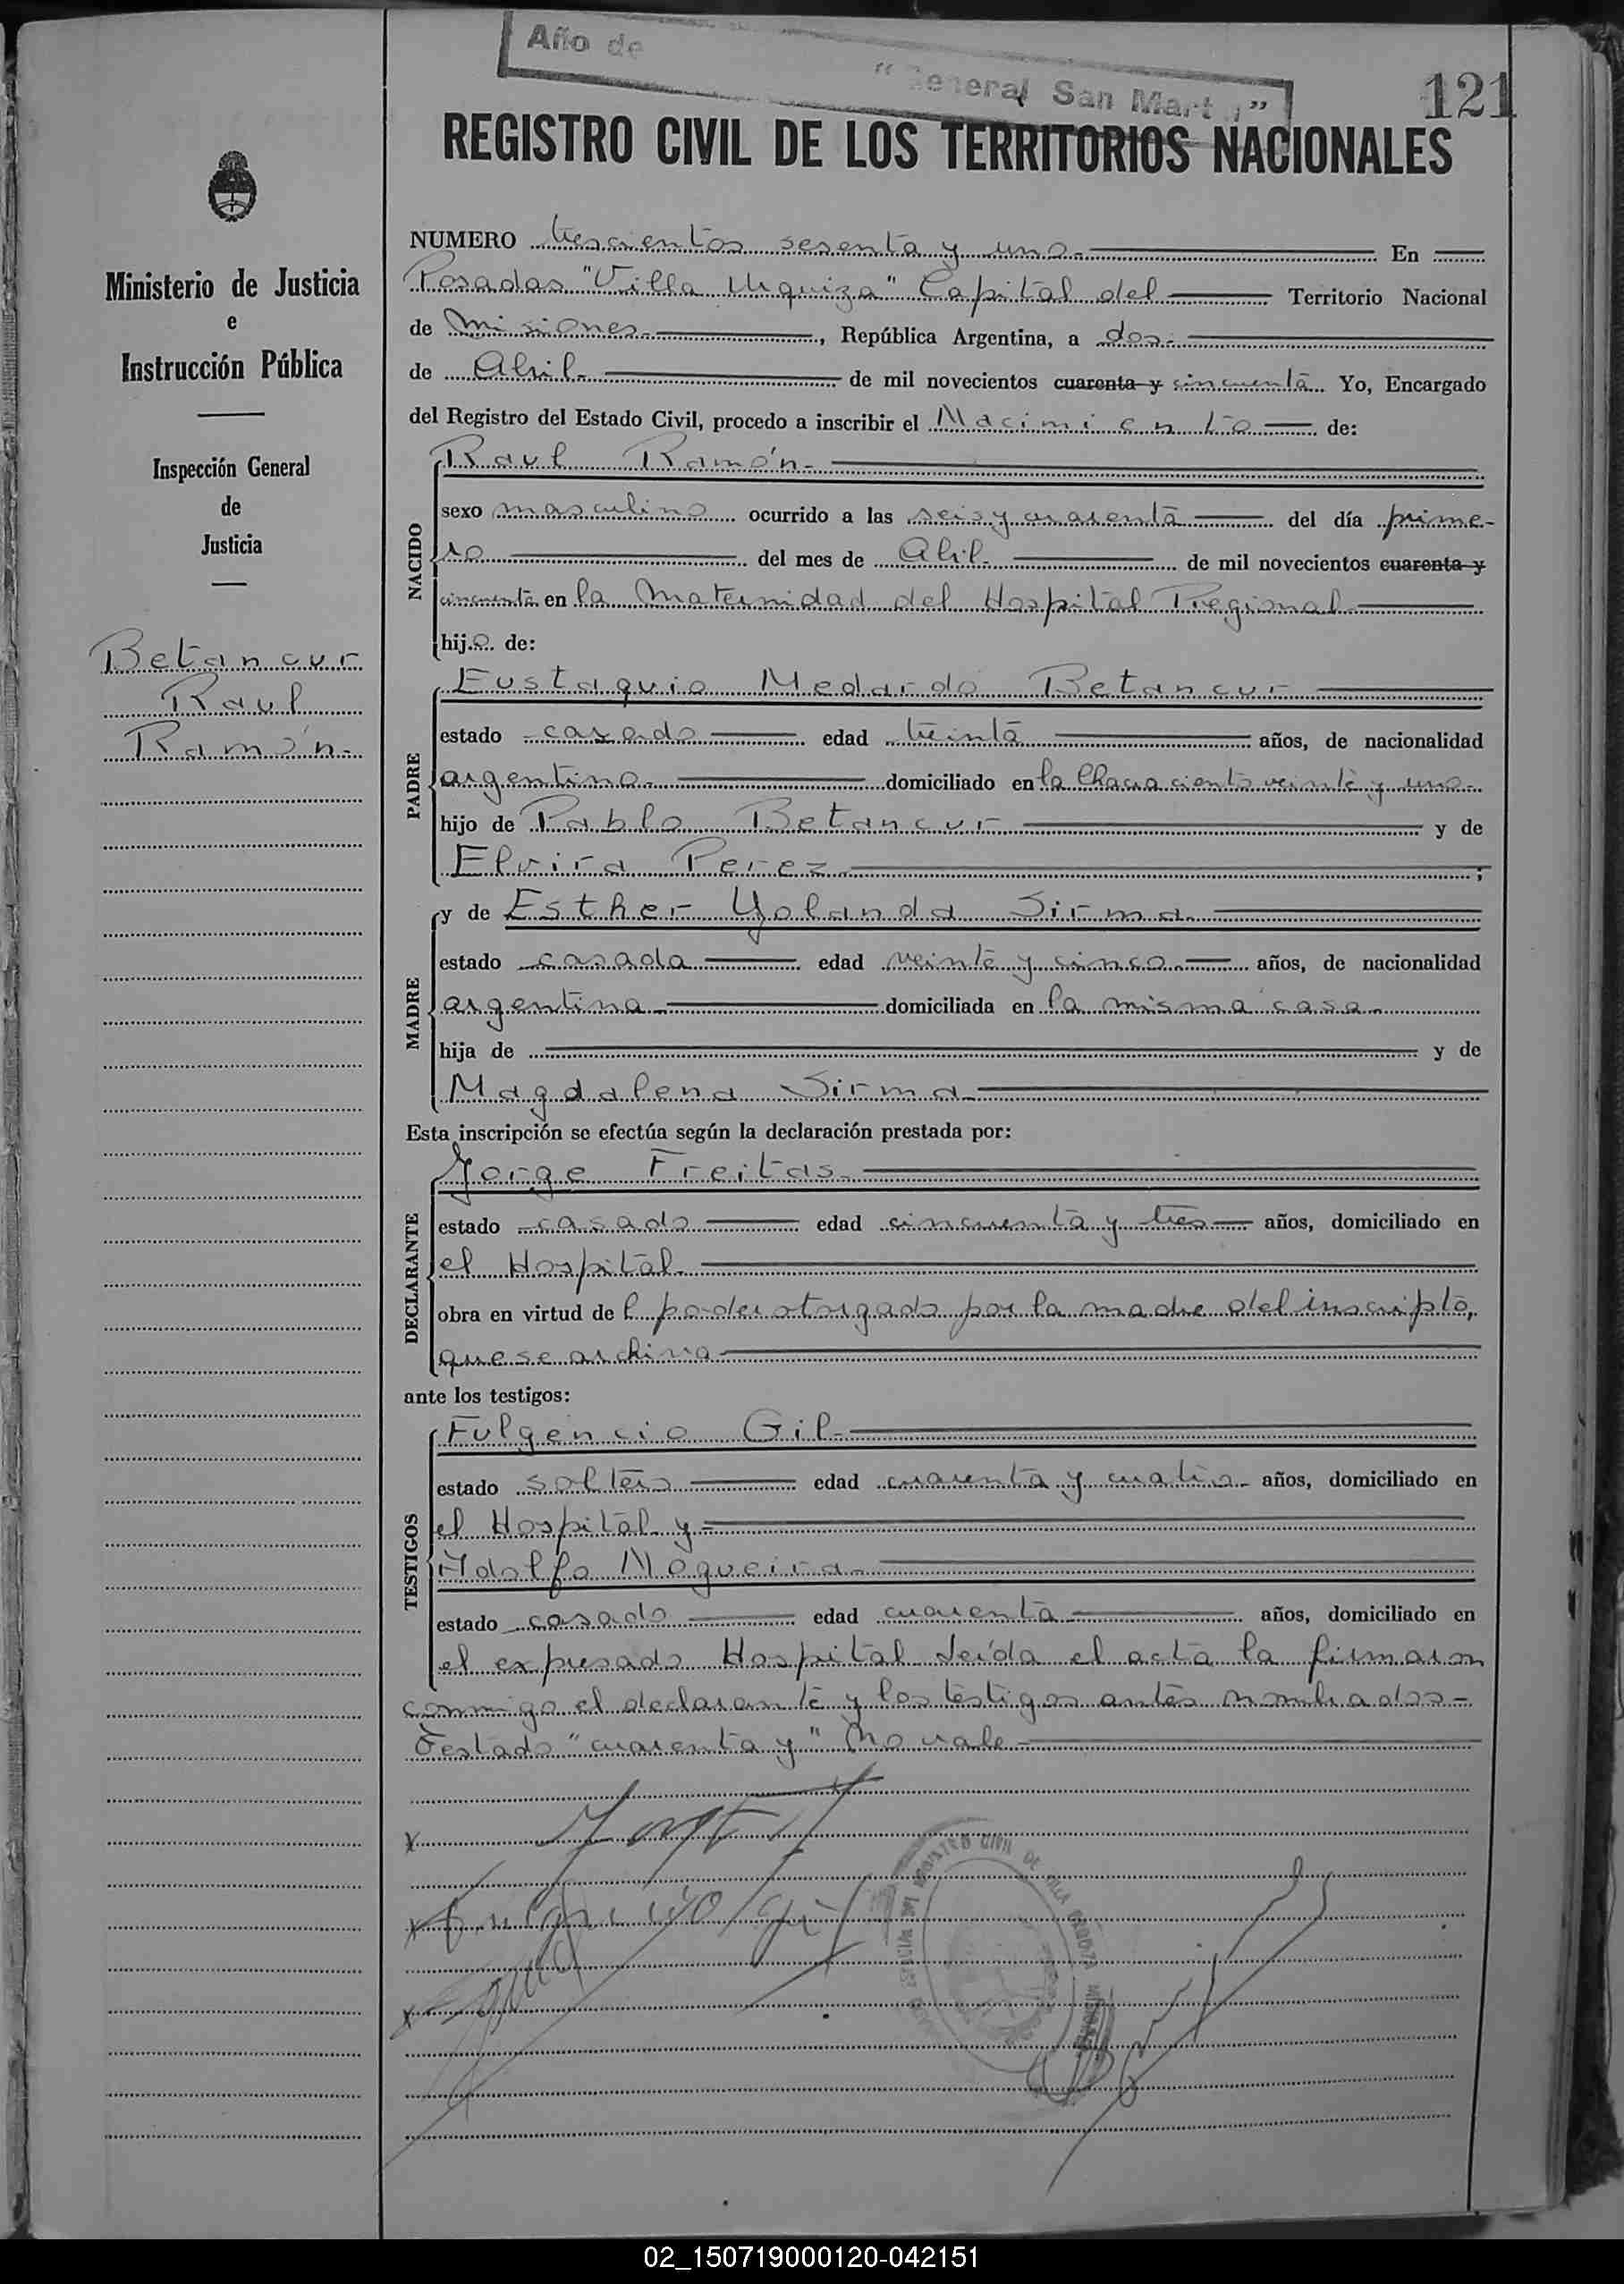 Año de
"General San Mart
121
REGISTRO CIVIL DE LOS TERRITORIOS NACIONALES
Ministerio de Justicia
e
Instrucción Pública
Inspección General
de
Justicia
Betancur
Raul
Ramón.-
NUMERO trescientos sesenta y uno.- En
Posadas "Villa Urquiza" Capital del Territorio Nacional
de Misiones.-, República Argentina, a dos.-
de Abril.- de mil novecientos cuarenta y cincuenta. Yo, Encargado
del Registro del Estado Civil, procedo a inscribir el Nacimiento de:
NACIDO
Raul Ramón.-
sexo masculino ocurrido a las seis y cuarenta del día prime-
ro del mes de Abril.- de mil novecientos cuarenta y
cincuenta en la Maternidad del Hospital Regional.-
hijo de:
PADRE
Eustaquio Medardo Betancur
estado casado edad treinta años, de nacionalidad
argentina.- domiciliado en la Chacra ciento veinte y uno.-
hijo de Pablo Betancur y de
Elvira Perez ;
MADRE
y de Esther Yolanda Sirma.
estado casada edad veinte y cinco.- años, de nacionalidad
argentina.- domiciliada en la misma casa.-
hija de y de
Magdalena Sirma.-
Esta inscripción se efectúa según la declaración prestada por:
DECLARANTE
Jorge Freitas.-
estado casado edad cincuenta y tres años, domiciliado en
el Hospital.-
obra en virtud del poder otorgado por la madre del inscripto,
que se archiva
ante los testigos:
TESTIGOS
Fulgencio Gil.-
estado soltero edad cuarenta y cuatro.- años, domiciliado en
el Hospital y.-
Adolfo Nogueira.-
estado casado edad cuarenta años, domiciliado en
el expresado Hospital Leída el acta la firmaron
conmigo el declarante y los testigos antes nombrados.-
Testado "cuarenta y" No vale.-
02_150719000120-042151